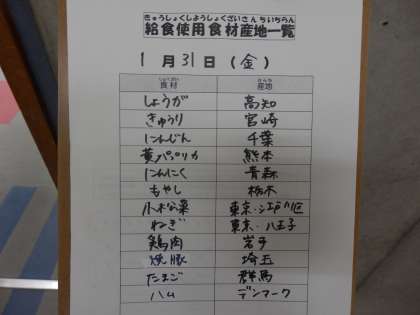 きゅうしょくしようしょくざいさんちいちらん
給食使用食材産地一覧
1月31日(金)
しょくざい さんち
食材 産地
しょうが 高知
きゅうり 宮崎
にんじん 千葉
黄パプリカ 熊本
にんにく 青森
もやし 栃木
小松菜 東京・江戸川区
ねぎ 東京・八王子
鶏肉 岩手
焼豚 埼玉
たまご 群馬
ハム デンマーク